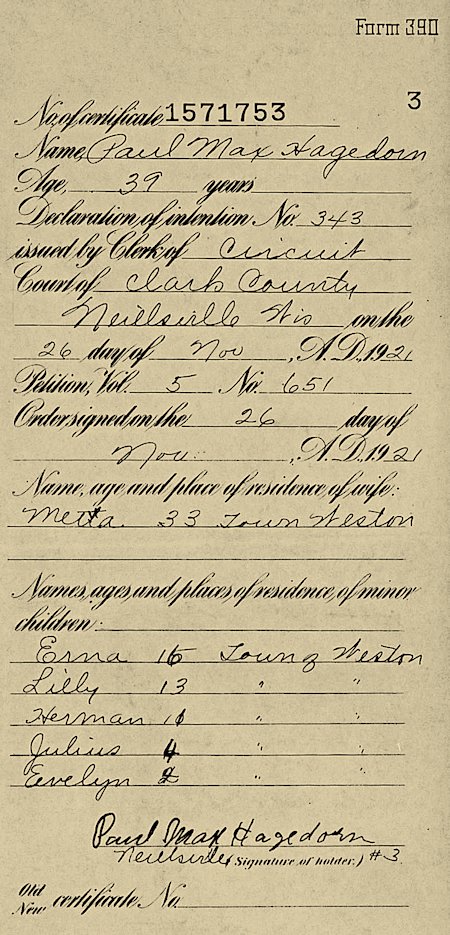 Form 390
3
No. of certificate 1571753
Name, Paul Max Hagedorn
Age, 39 years
Declaration of intention No. 343
issued by Clerk of Circuit
Court of Clark County
Neillsville Wis on the
26 day of Nov , A. D., 1921
Petition, Vol. 5 No. 651
Order signed, on the 26 day of
Nov. , A. D., 1921
Name, age and place of residence of wife:
Metta 33 Town Weston
Names, ages, and places of residence, of minor
children:
Erna 15 Town of Weston
Lilly 13 " "
Herman 11 " "
Julius 4 " "
Evelyn 2 " "
Paul Max Hagedorn
Neillsville (Signature of holder.) #3
Old
New certificate No.